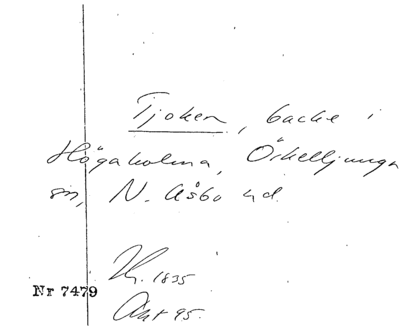 Tjoken, backe i
Högaholma, Örkelljunga
sn, N. Åsbo hd.
Nr 7479
1835
Akt 95.